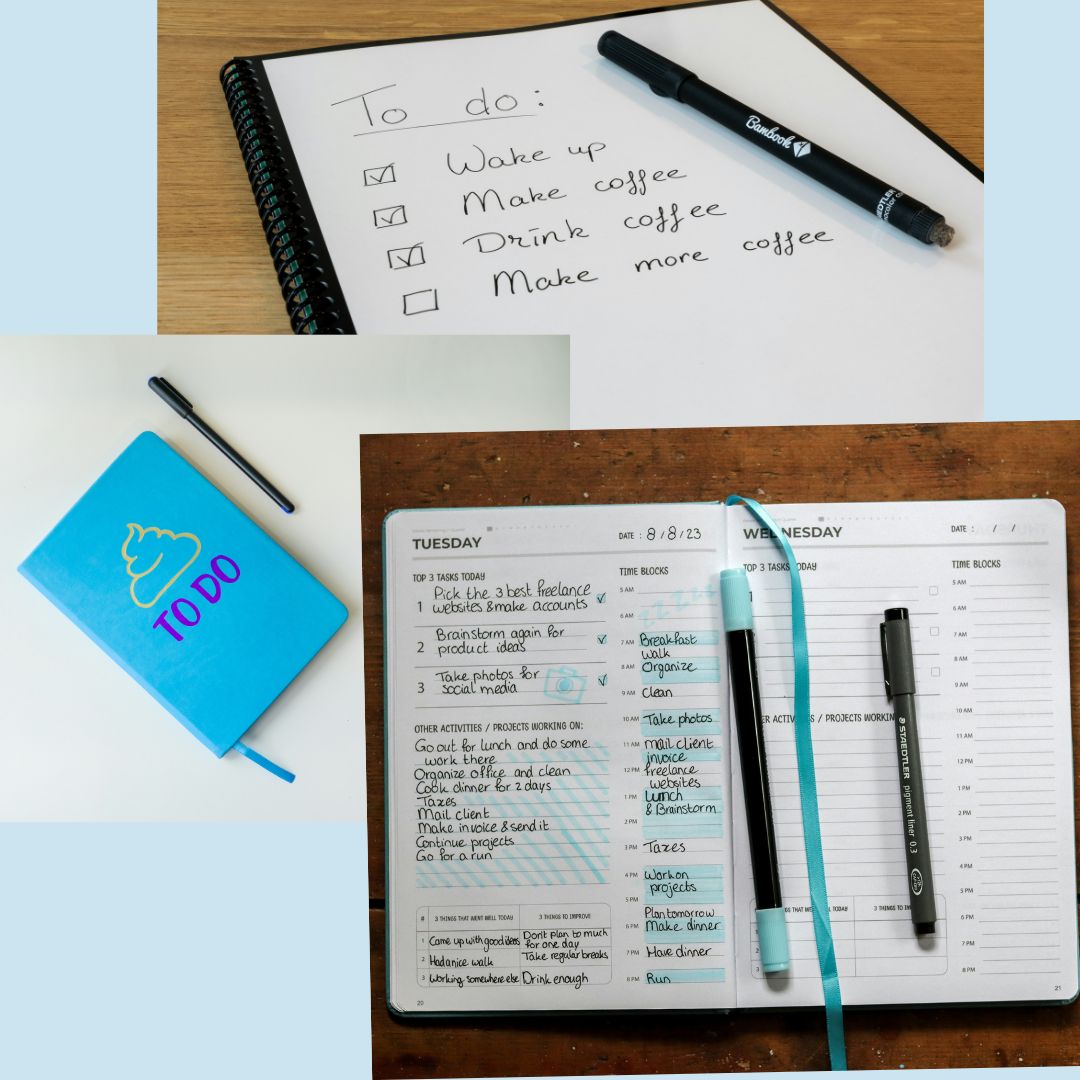 To do:
Wake up
Make coffee
Drink coffee
Make more coffee
Bambook
STAEDTLER
TO DO
TUESDAY
DATE : 8/8/23
TOP 3 TASKS TODAY
1 Pick the 3 best freelance
websites & make accounts
2 Brainstorm again for
product ideas
3 Take photos for
social media
OTHER ACTIVITIES / PROJECTS WORKING ON:
Go out for lunch and do some
work there
Organize office and clean
Cook dinner for 2 days
Taxes
Mail client
Make invoice & send it
Continue projects
Go for a run
# 3 THINGS THAT WENT WELL TODAY 3 THINGS TO IMPROVE
1 Came up with good ideas Don't plan to much
for one day
2 Had a nice walk Take regular breaks
3 Working somewhere else Drink enough
20
TIME BLOCKS
5 AM
zzzzz
6 AM
7 AM Breakfast
walk
8 AM Organize
9 AM Clean
10 AM Take photos
11 AM Mail client
invoice
12 PM freelance
websites
1 PM Lunch
& Brainstorm
2 PM
3 PM Taxes
4 PM Work on
projects
5 PM
Plan tomorrow
6 PM Make dinner
7 PM Have dinner
8 PM Run
WEDNESDAY
DATE : / /
TOP 3 TASKS TODAY
1
ACTIVITIES / PROJECTS WORKIN
THAT WENT WELL TODAY 3 THINGS TO
3
TIME BLOCKS
5 AM
6 AM
7 AM
8 AM
9 AM
10 AM
11 AM
12 PM
1 PM
2 PM
3 PM
4 PM
5 PM
6 PM
7 PM
8 PM
21
STAEDTLER pigment liner 0.3